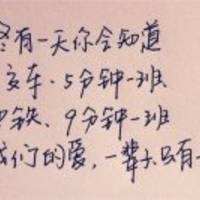 有一天你会知道
交车·5分钟一班
铁、9分钟一班
我们的爱，一辈子只有一